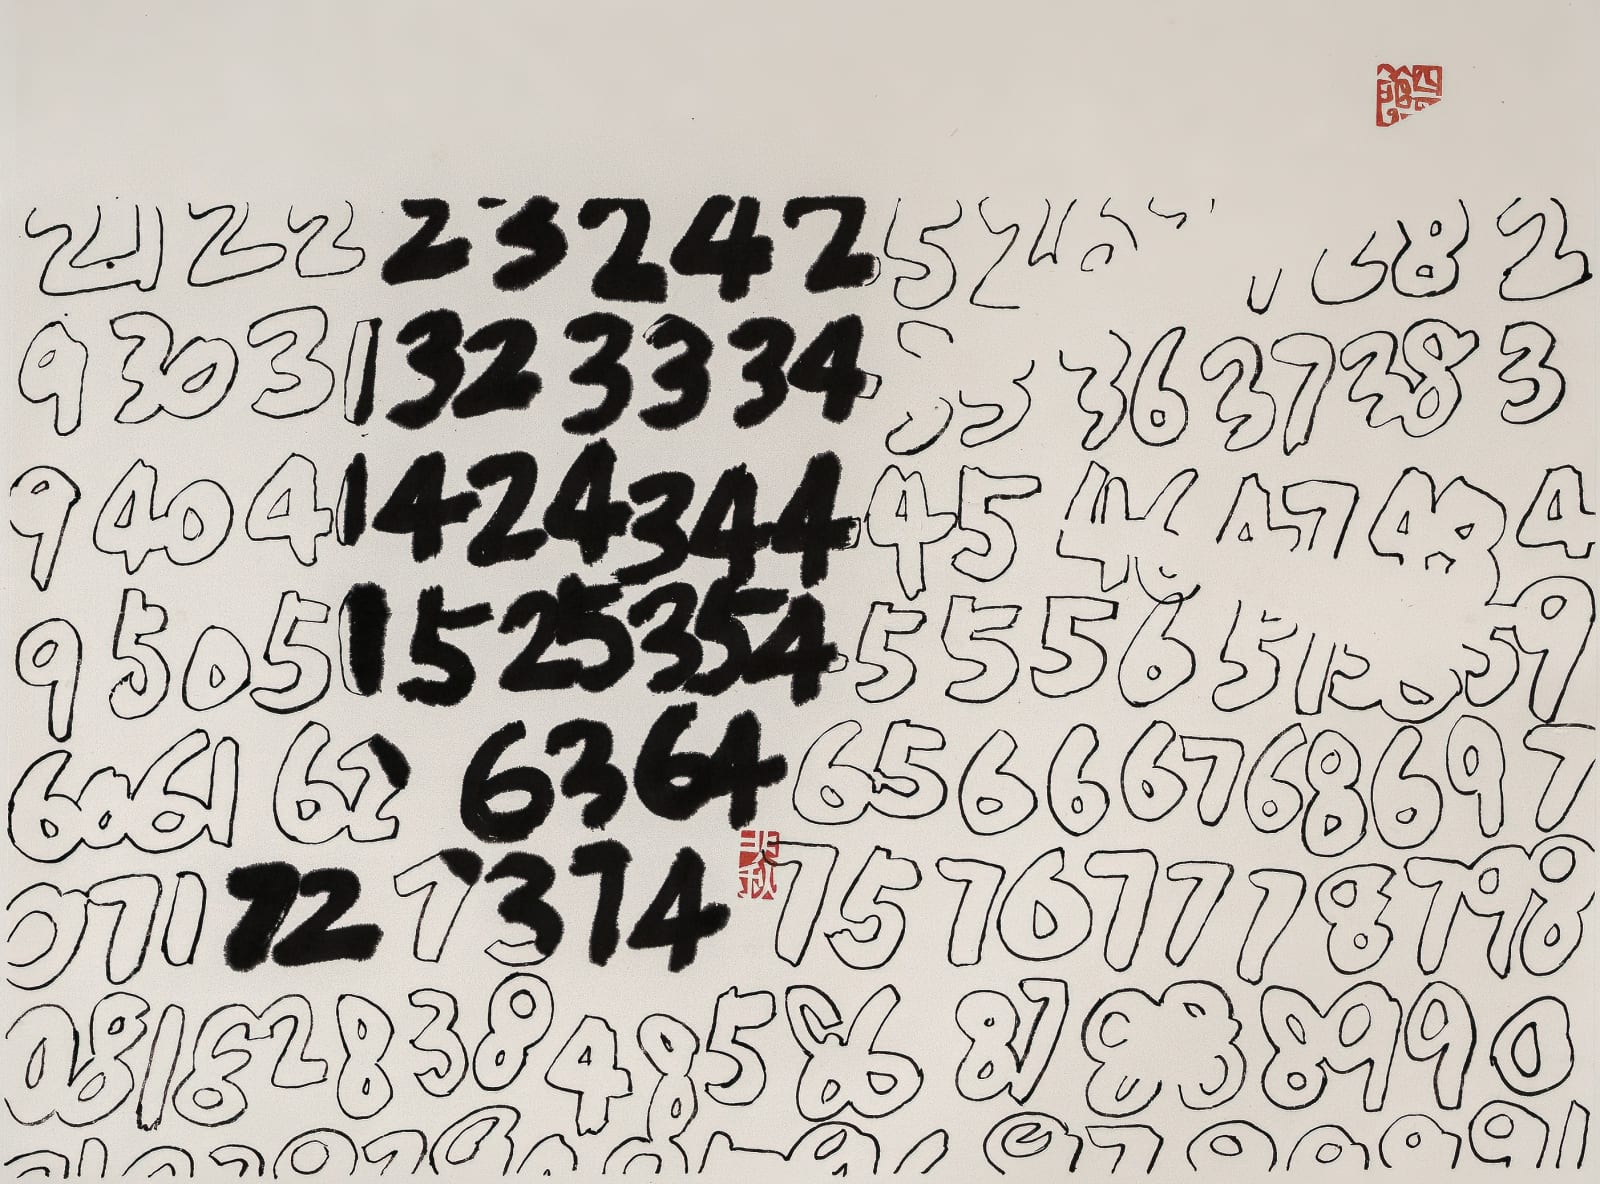 21 22 23 24 25 2 8 2
9 30 31 32 33 34 36 37 38 3
9 40 41 42 43 44 45 46 47 48 4
9 50 51 52 53 54 55 56 5 5 59
60 61 62 63 64 65 66 67 68 69 7
0 71 72 73 74 75 76 77 78 79 8
0 81 82 83 84 85 86 87 88 89 90